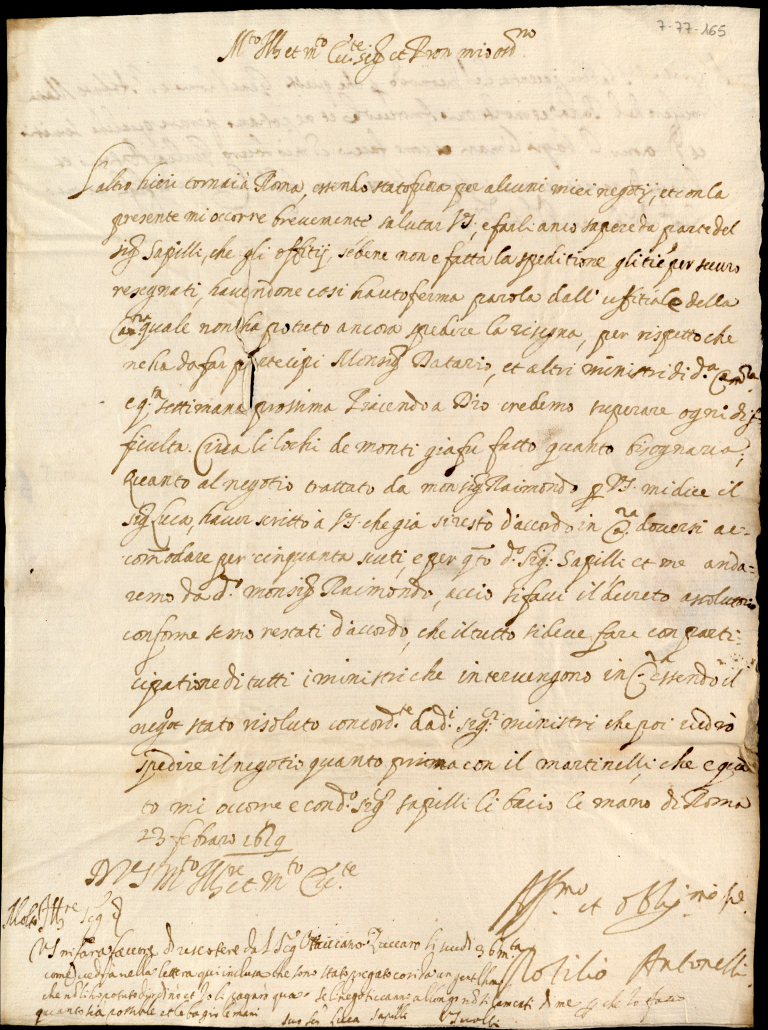 7-77-165
M.to Ill. et m.to Ecc.te Sig. et Pron mio oss.mo
L'altro hieri tornai à Roma, essendo stato fuora per alcuni miei negotij, et con la
presente mi occorre brevemente salutar VS, e farli anco sapere da parte del
sig. Sapilli, che gli offitij, se bene non è fatta la speditione gli tiè per securo
resegnati, havendone cosi hauto ferma parola dall' uffitiale della
Cam.ra quale non ha potuto ancora spedire la risegna, per rispetto che
ne ha da far partecipi Monsig. Datario, et altri ministri di d.a Cam.ra
e q.a settimana prossima Piacendo a Dio credemo superare ogni dif
ficulta. Circa li lochi de monti gia fu fatto quanto bisognaria;
Quanto al negotio trattato da monsig. Raimondo p VS. mi dice il
sig. Luca, haver scritto à VS. che gia si restò d'accordo in C.ra doversi ac-
comodare per cinquanta scuti, e per q.to d.o Sig. Sapilli et me anda=
remo da d.o monsig. Raimondo, accio si facci il decreto assolutorio
conforme semo restati d'accordo, che il tutto si deve fare con parti-
cipatione di tutti i ministri che intervengono in C.ra essendo il
negot.o stato risoluto concord.te da d.i sig.ri ministri che poi vedrò
spedire il negotio quanto prima con il martinelli, che è qua
to mi occorre e con d.o sig. Sapilli li bacio le mano di Roma
23 febraro 1619
D VS M.to Ill.re et M.to Ecc.te
Aff.mo et obblig.mo se.
Rotilio Antonelli
Molto Ill.re Sig.
VS mi fara favore di riscotere da S Sig. Ottaviano Zuccaro li scudi 36 m.ta
come vedra nella lettera qui inclusa che sono stato pregato cosi da un gentilhuo
che non li ho potuto dir di no et Io li pagarò qua
quanto sia possibile et le bagio le mani
suo ser. Luca Sapilli